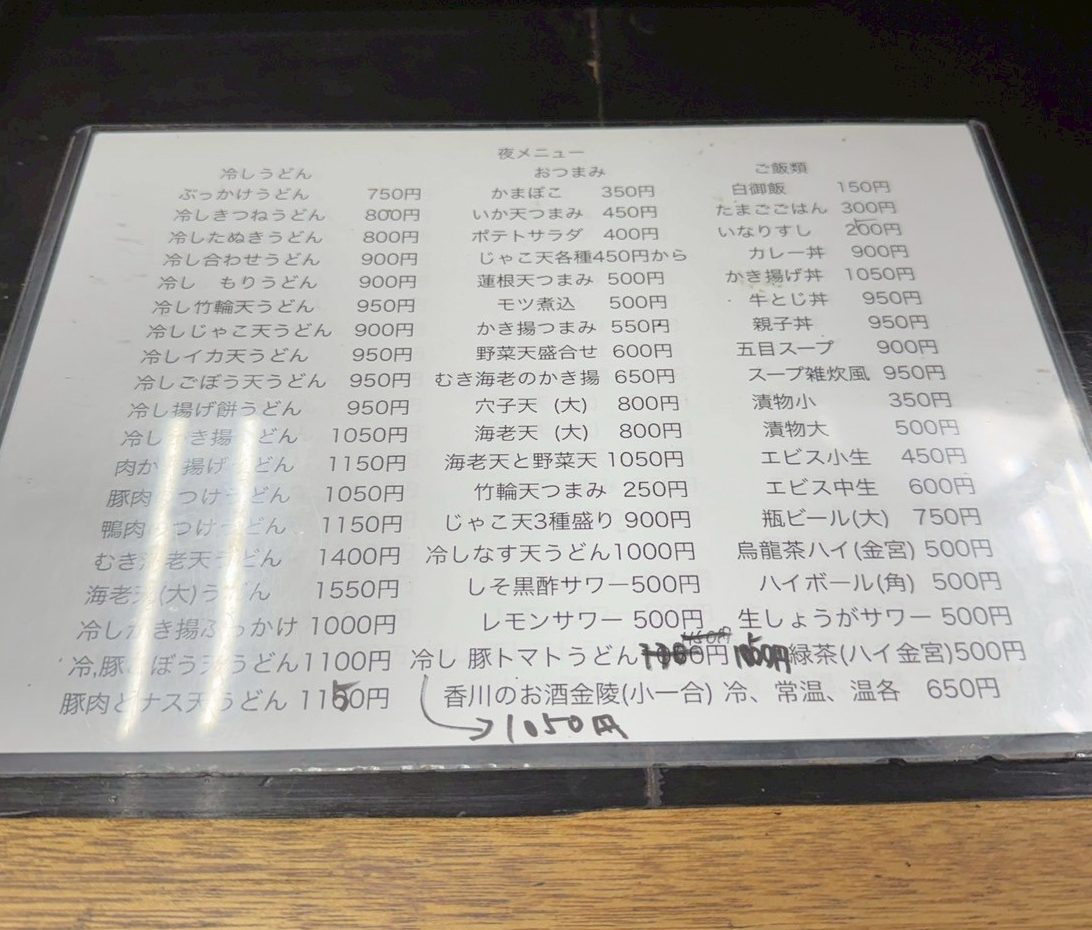 夜メニュー
冷しうどん
ぶっかけうどん 750円
冷しきつねうどん 800円
冷したぬきうどん 800円
冷し合わせうどん 900円
冷し もりうどん 900円
冷し竹輪天うどん 950円
冷しじゃこ天うどん 900円
冷しイカ天うどん 950円
冷しごぼう天うどん 950円
冷し揚げ餅うどん 950円
冷しかき揚うどん 1050円
肉かき揚げうどん 1150円
豚肉 つけうどん 1050円
鴨肉 つけうどん 1150円
むき海老天うどん 1400円
海老天(大)うどん 1550円
冷しかき揚ぶっかけ 1000円
冷,豚ごぼう天うどん1100円
豚肉とナス天うどん 1150円
おつまみ
かまぼこ 350円
いか天つまみ 450円
ポテトサラダ 400円
じゃこ天各種450円から
蓮根天つまみ 500円
モツ煮込 500円
かき揚つまみ 550円
野菜天盛合せ 600円
むき海老のかき揚 650円
穴子天 (大) 800円
海老天 (大) 800円
海老天と野菜天 1050円
竹輪天つまみ 250円
じゃこ天3種盛り 900円
冷しなす天うどん1000円
しそ黒酢サワー500円
レモンサワー 500円
冷し 豚トマトうどん 円
1050円
香川のお酒金陵(小一合) 冷、常温、温各 650円
ご飯類
白御飯 150円
たまごごはん 300円
いなりずし 250円
カレー丼 900円
かき揚げ丼 1050円
牛とじ丼 950円
親子丼 950円
五目スープ 900円
スープ雑炊風 950円
漬物小 350円
漬物大 500円
エビス小生 450円
エビス中生 600円
瓶ビール(大) 750円
烏龍茶ハイ(金宮) 500円
ハイボール(角) 500円
生しょうがサワー 500円
緑茶(ハイ金宮)500円